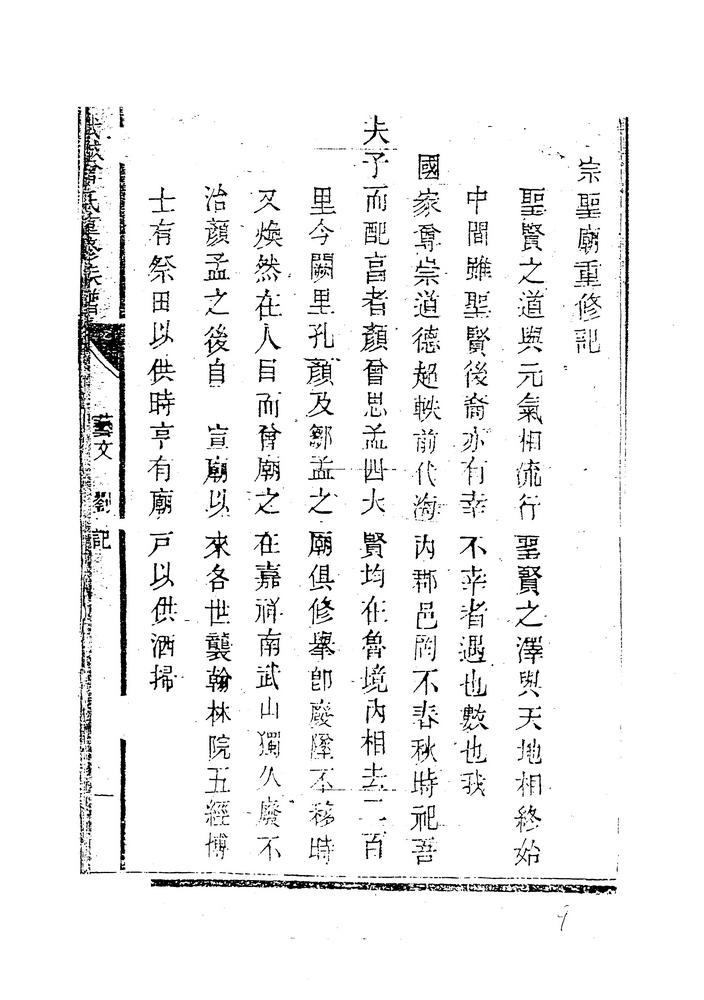 宗聖廟重修記
聖賢之道與元氣相流行聖賢之澤與天地相終始
中間雖聖賢後裔亦有幸不幸者遇也數也我
國家尊崇道德超軼前代海內郡邑罔不春秋時祀吾
夫子而配享者顏曾思孟四大賢均在魯境內相去二百
里今闕里孔顏及鄒孟之廟俱修舉卽廢墜不移時
又煥然在人目而曾廟之在嘉祥南武山獨久廢不
治顏孟之後自 宣廟以來各世襲翰林院五經博
士有祭田以供時亨有廟戶以供洒掃
氏重修族譜
藝文 劉記
一
9